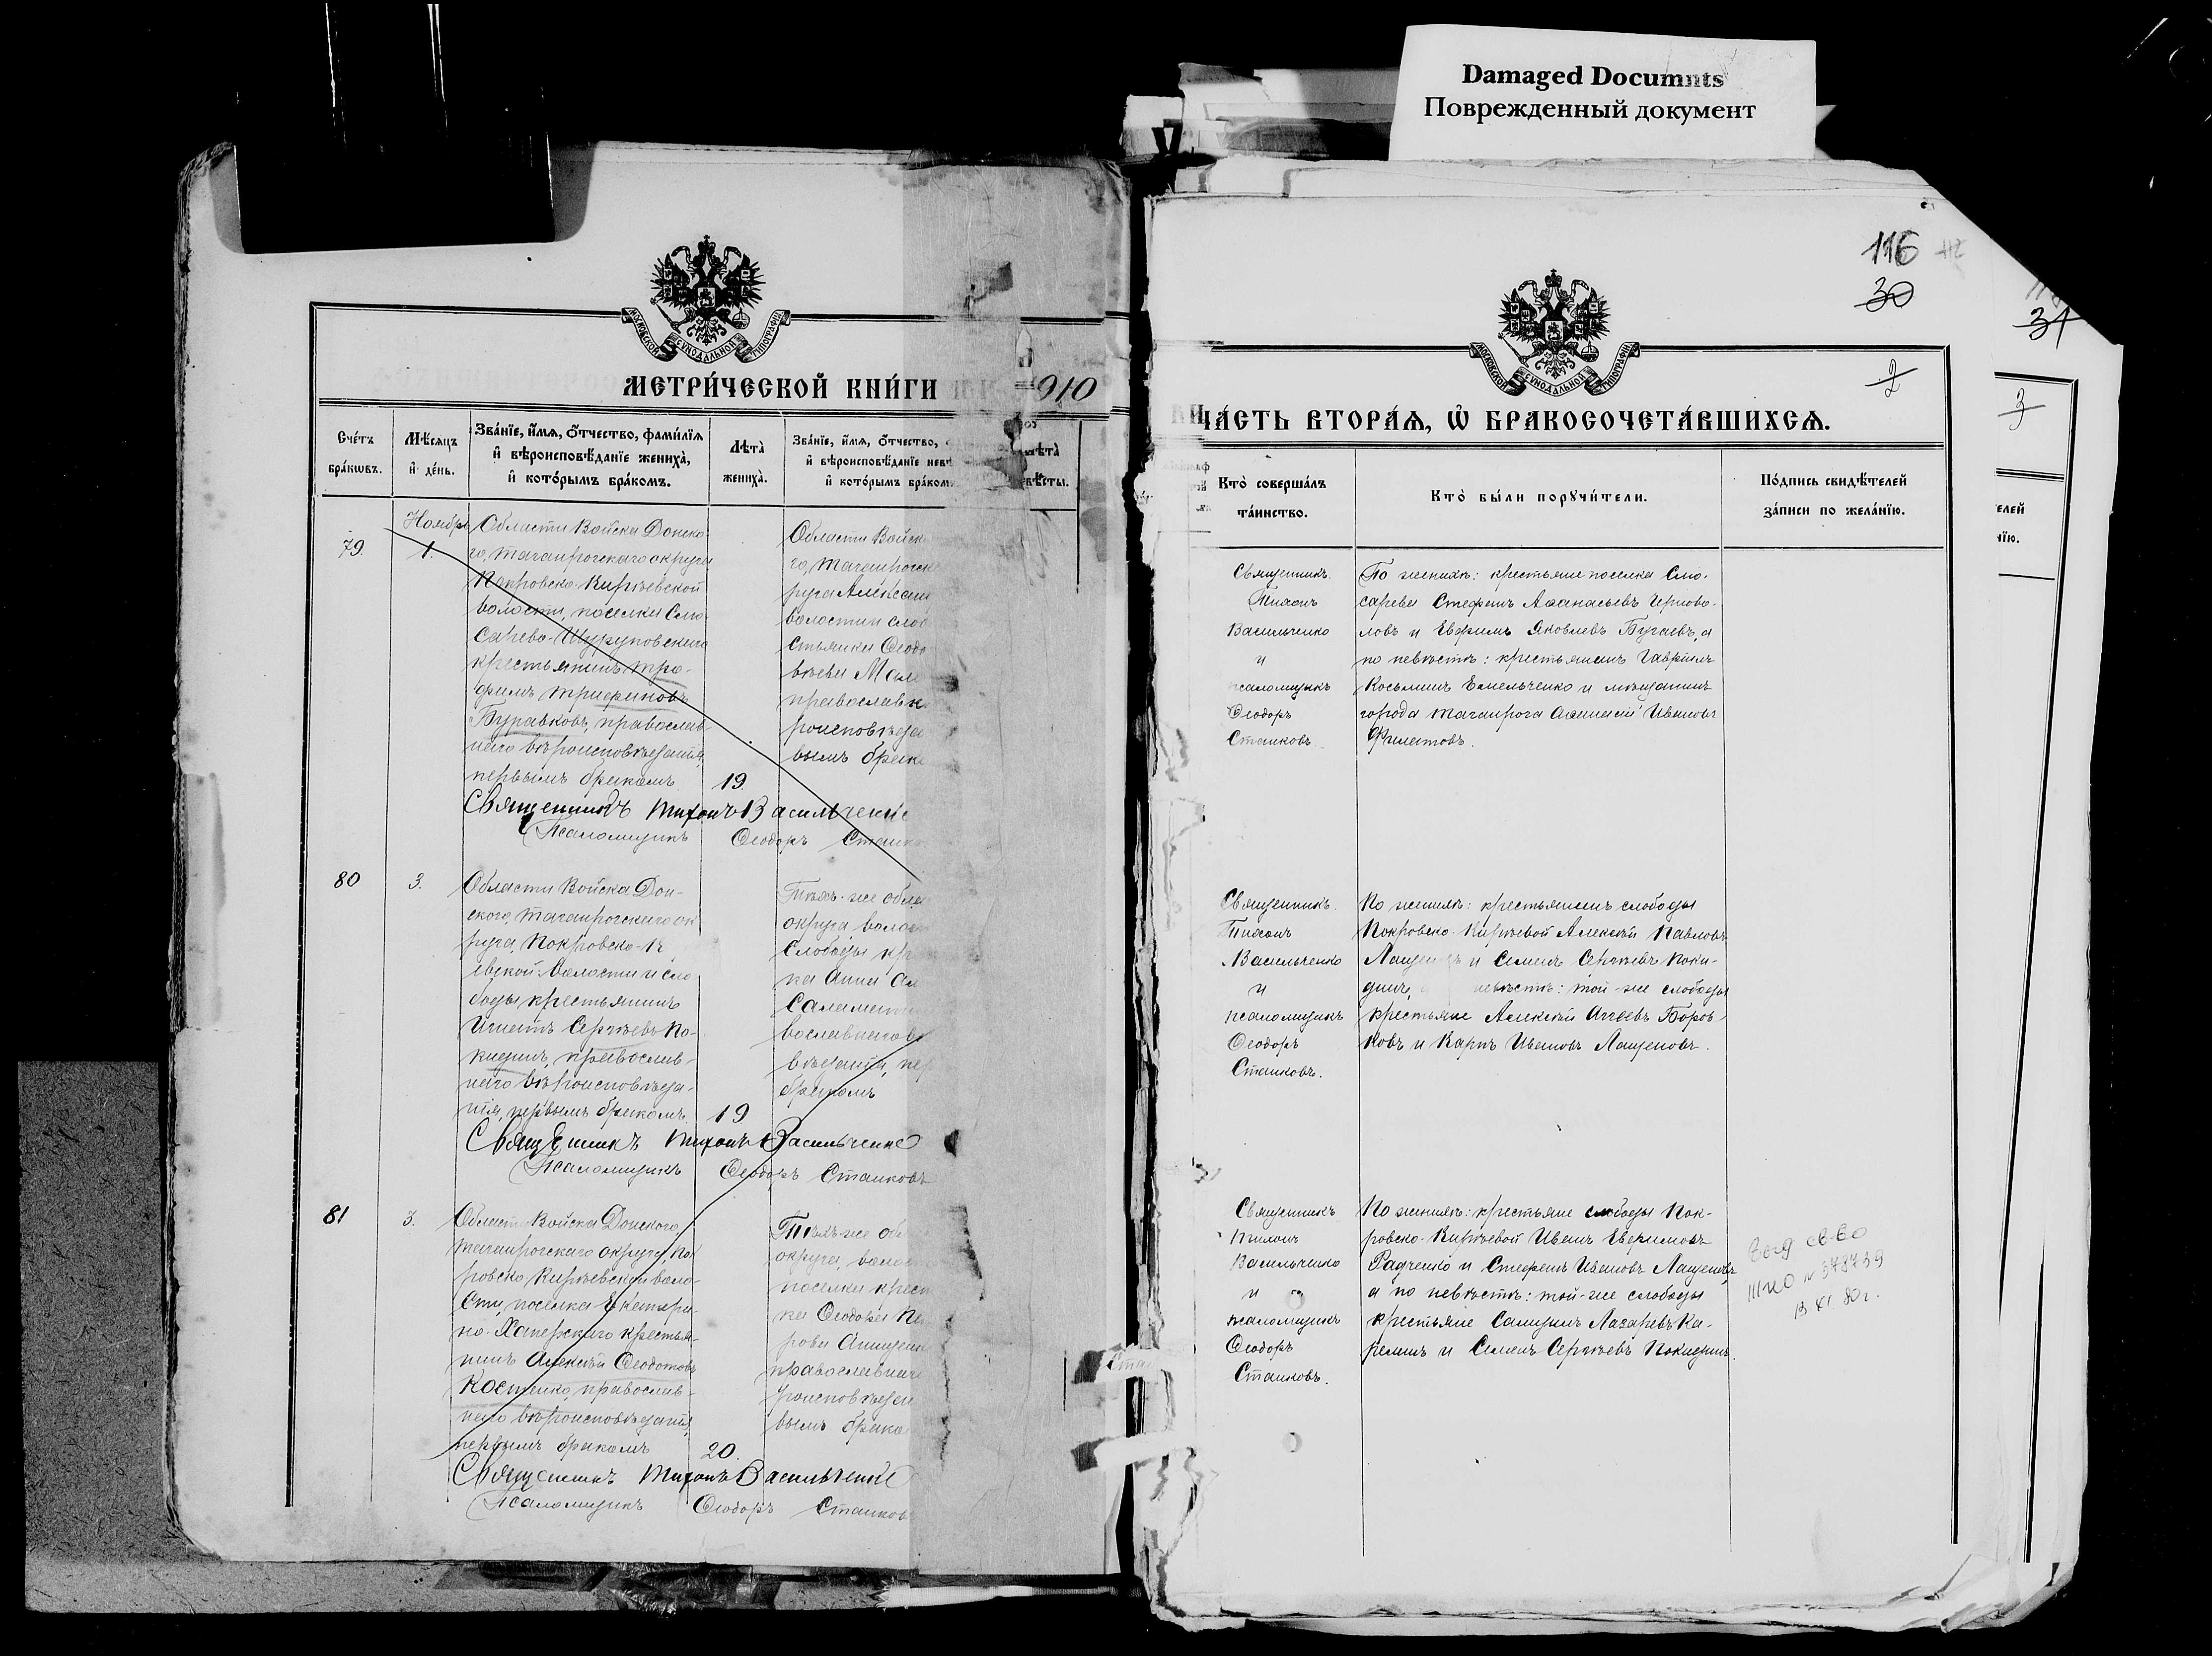 Damaged Documnts
Поврежденный документ
МЕТРИ́ЧЕСКОЙ КНИ́ГИ
910
Сче́тъ бра́кѡвъ.
Мѣ́сяцъ и де́нь.
Зва́нїе, и́мѧ, ѻ́тчество, фами́лїѧ и вѣроисповѣ́данїе жениха̀, и кото́рымъ бра́комъ.
Лѣта̀ жениха̀.
Зва́нїе, и́мѧ, ѻ́тчество,
и вѣроисповѣ́данїе невѣ
и кото́рымъ бра́комъ
79.
Ноябрь
1.
Области Войска Донско-
го, Таганрогскаго округа
Покровско-Кирѣевской
волости, поселка Слю-
сарево-Щуруповскаго
крестьянинъ Тро-
фимъ Трифоновъ
Буравковъ, православ-
наго вѣроисповѣданія,
первымъ бракомъ
19.
Области Войска
го, Таганрогска
руга Алексан
волости и слоб
стьянка Ѳеодо
вѣева Мал
православн
роисповѣда
вымъ брако
Священникъ Тихонъ Васильченко
Псаломщикъ Ѳеодоръ Станко
80
3.
Области Войска Дон-
ского, Таганрогскаго ок
руга, Покровско-К
ѣвской волости и сло
боды крестьянинъ
Игнатъ Сергѣевъ По-
кидинъ, православ-
наго вѣроисповѣда-
нія, первымъ бракомъ
19
Тѣхъ-же обла
округа волос
слободы кр
ка Анна Ал
Саламат
вославнаго в
вѣданія, пер
бракомъ
Священникъ Тихонъ Васильченко
Псаломщикъ Ѳеодоръ Станковъ
81
3.
Области Войска Донского
Таганрогскаго округа, Пок
ровско-Кирѣевской воло-
сти, поселка Екатери-
но-Хаперскаго крестья-
нинъ Алексѣй Ѳеодотовъ
Костенко, православ-
наго вѣроисповѣданія,
первымъ бракомъ
20.
Тѣхъ-же об
округа, волос
поселка крест
ка Ѳеодора Пе
рова Анищен
православнаго
роисповѣдан
вымъ брако
Священникъ Тихонъ Васильченко
Псаломщикъ Ѳеодоръ Станков
116
30
2
31
3
ЧА́СТЬ ВТОРА́Ѧ, Ѽ БРАКОСОЧЕТА́ВШИХСѦ.
Кто̀ соверша́лъ та́инство.
Кто̀ бы́ли порꙋчи́тели.
По́дпись свидѣ́телей за́писи по жела́нїю.
Священникъ
Тихонъ
Васильченко
и
псаломщикъ
Ѳеодоръ
Станковъ.
По женихѣ: крестьяне поселка Слю-
сарева Стефанъ Аѳанасьевъ Черново-
ловъ и Евфимъ Яковлевъ Бугаевъ, а
по невѣстѣ: крестьянинъ Гавріилъ
Косьминъ Емельченко и мѣщанинъ
города Таганрога Алексѣй Ивановъ
Филатовъ.
Священникъ
Тихонъ
Васильченко
и
псаломщикъ
Ѳеодоръ
Станковъ.
По женихѣ: крестьянинъ слободы
Покровско-Кирѣевой Алексѣй Павловъ
и Семенъ Сергѣевъ Поки-
динъ, невѣстѣ: той-же слободы
крестьяне Алексѣй Агѣевъ Боров-
ковъ и Карпъ Ивановъ Лащеновъ.
Священникъ
Тихонъ
Васильченко
и
псаломщикъ
Ѳеодоръ
Станковъ.
По женихѣ: крестьяне слободы Пок-
ровско-Кирѣевой Иванъ Евфимовъ
Радченко и Стефанъ Ивановъ Лащеновъ,
а по невѣстѣ: той-же слободы
крестьяне Самуилъ Лазаревъ Ка-
релинъ и Семенъ Сергѣевъ Покидинъ.
св-во
№ 378739